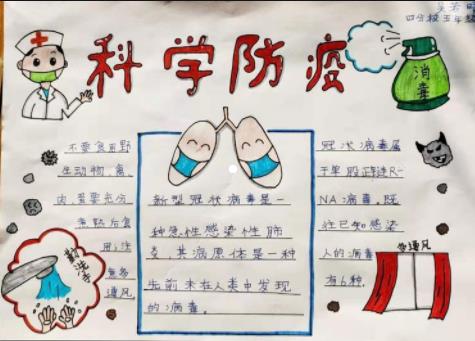 四分校五年级
科学防疫
消毒
不要食用野
生动物、禽、
肉蛋要充分
煮熟后食
用、注
通风
新型冠状病毒是一
种急性感染性肺
炎,其病原体是一种
先前未在人类中发现
的病毒。
冠状病毒属
于单股正链R-
NA病毒,既
往已知感染
人的病毒
有6种.
勤洗手
通风